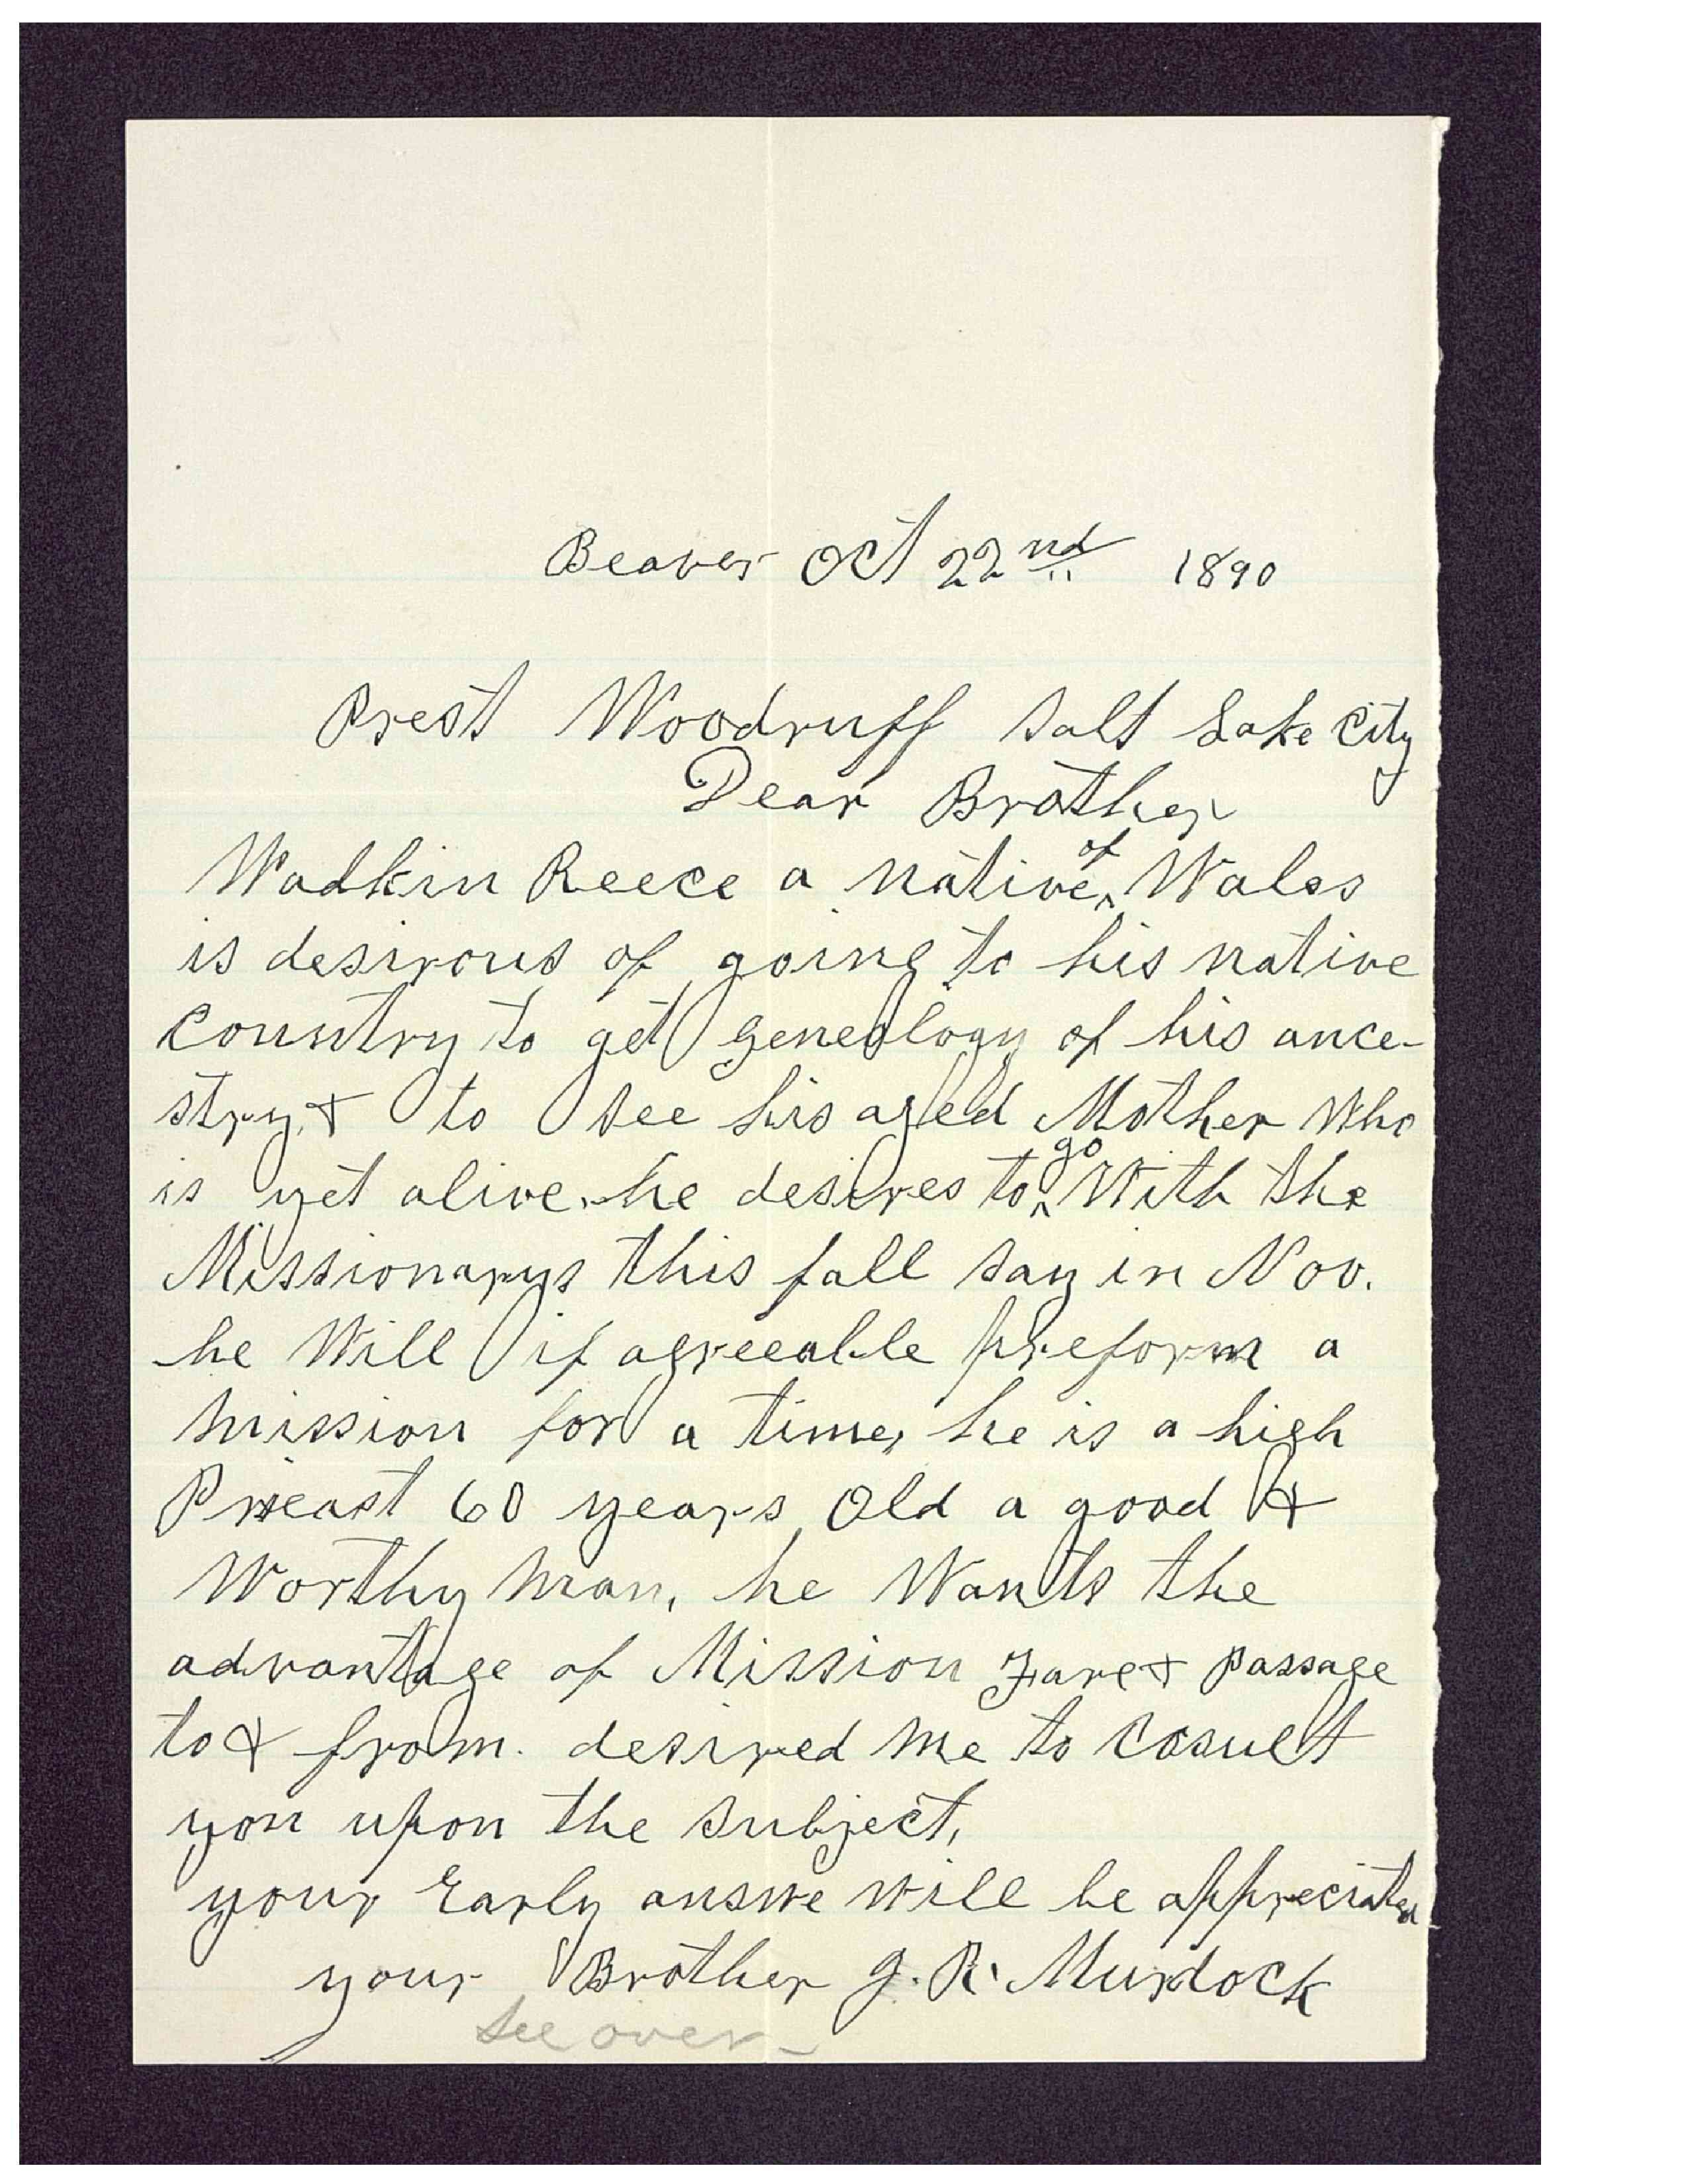 Beaver Oct 22nd 1890
Prest Woodruff Salt Lake City
Dear Brother
Wadkin Reece a native of Wales
is desirous of going to his native
Country to get geneology of his ance-
stry, & to see his aged Mother who
is yet alive. he desires to go With the
Missionarys this fall say in Nov.
he Will if agreeable preform a
mission for a time, he is a high
Prieast 60 years old a good &
Worthy man, he Wants the
advantage of Mission Fare & passage
to & from. desired me to Cosult
you upon the subject,
your Early answe will be appreciated
your Brother J. R. Murdock
See over-